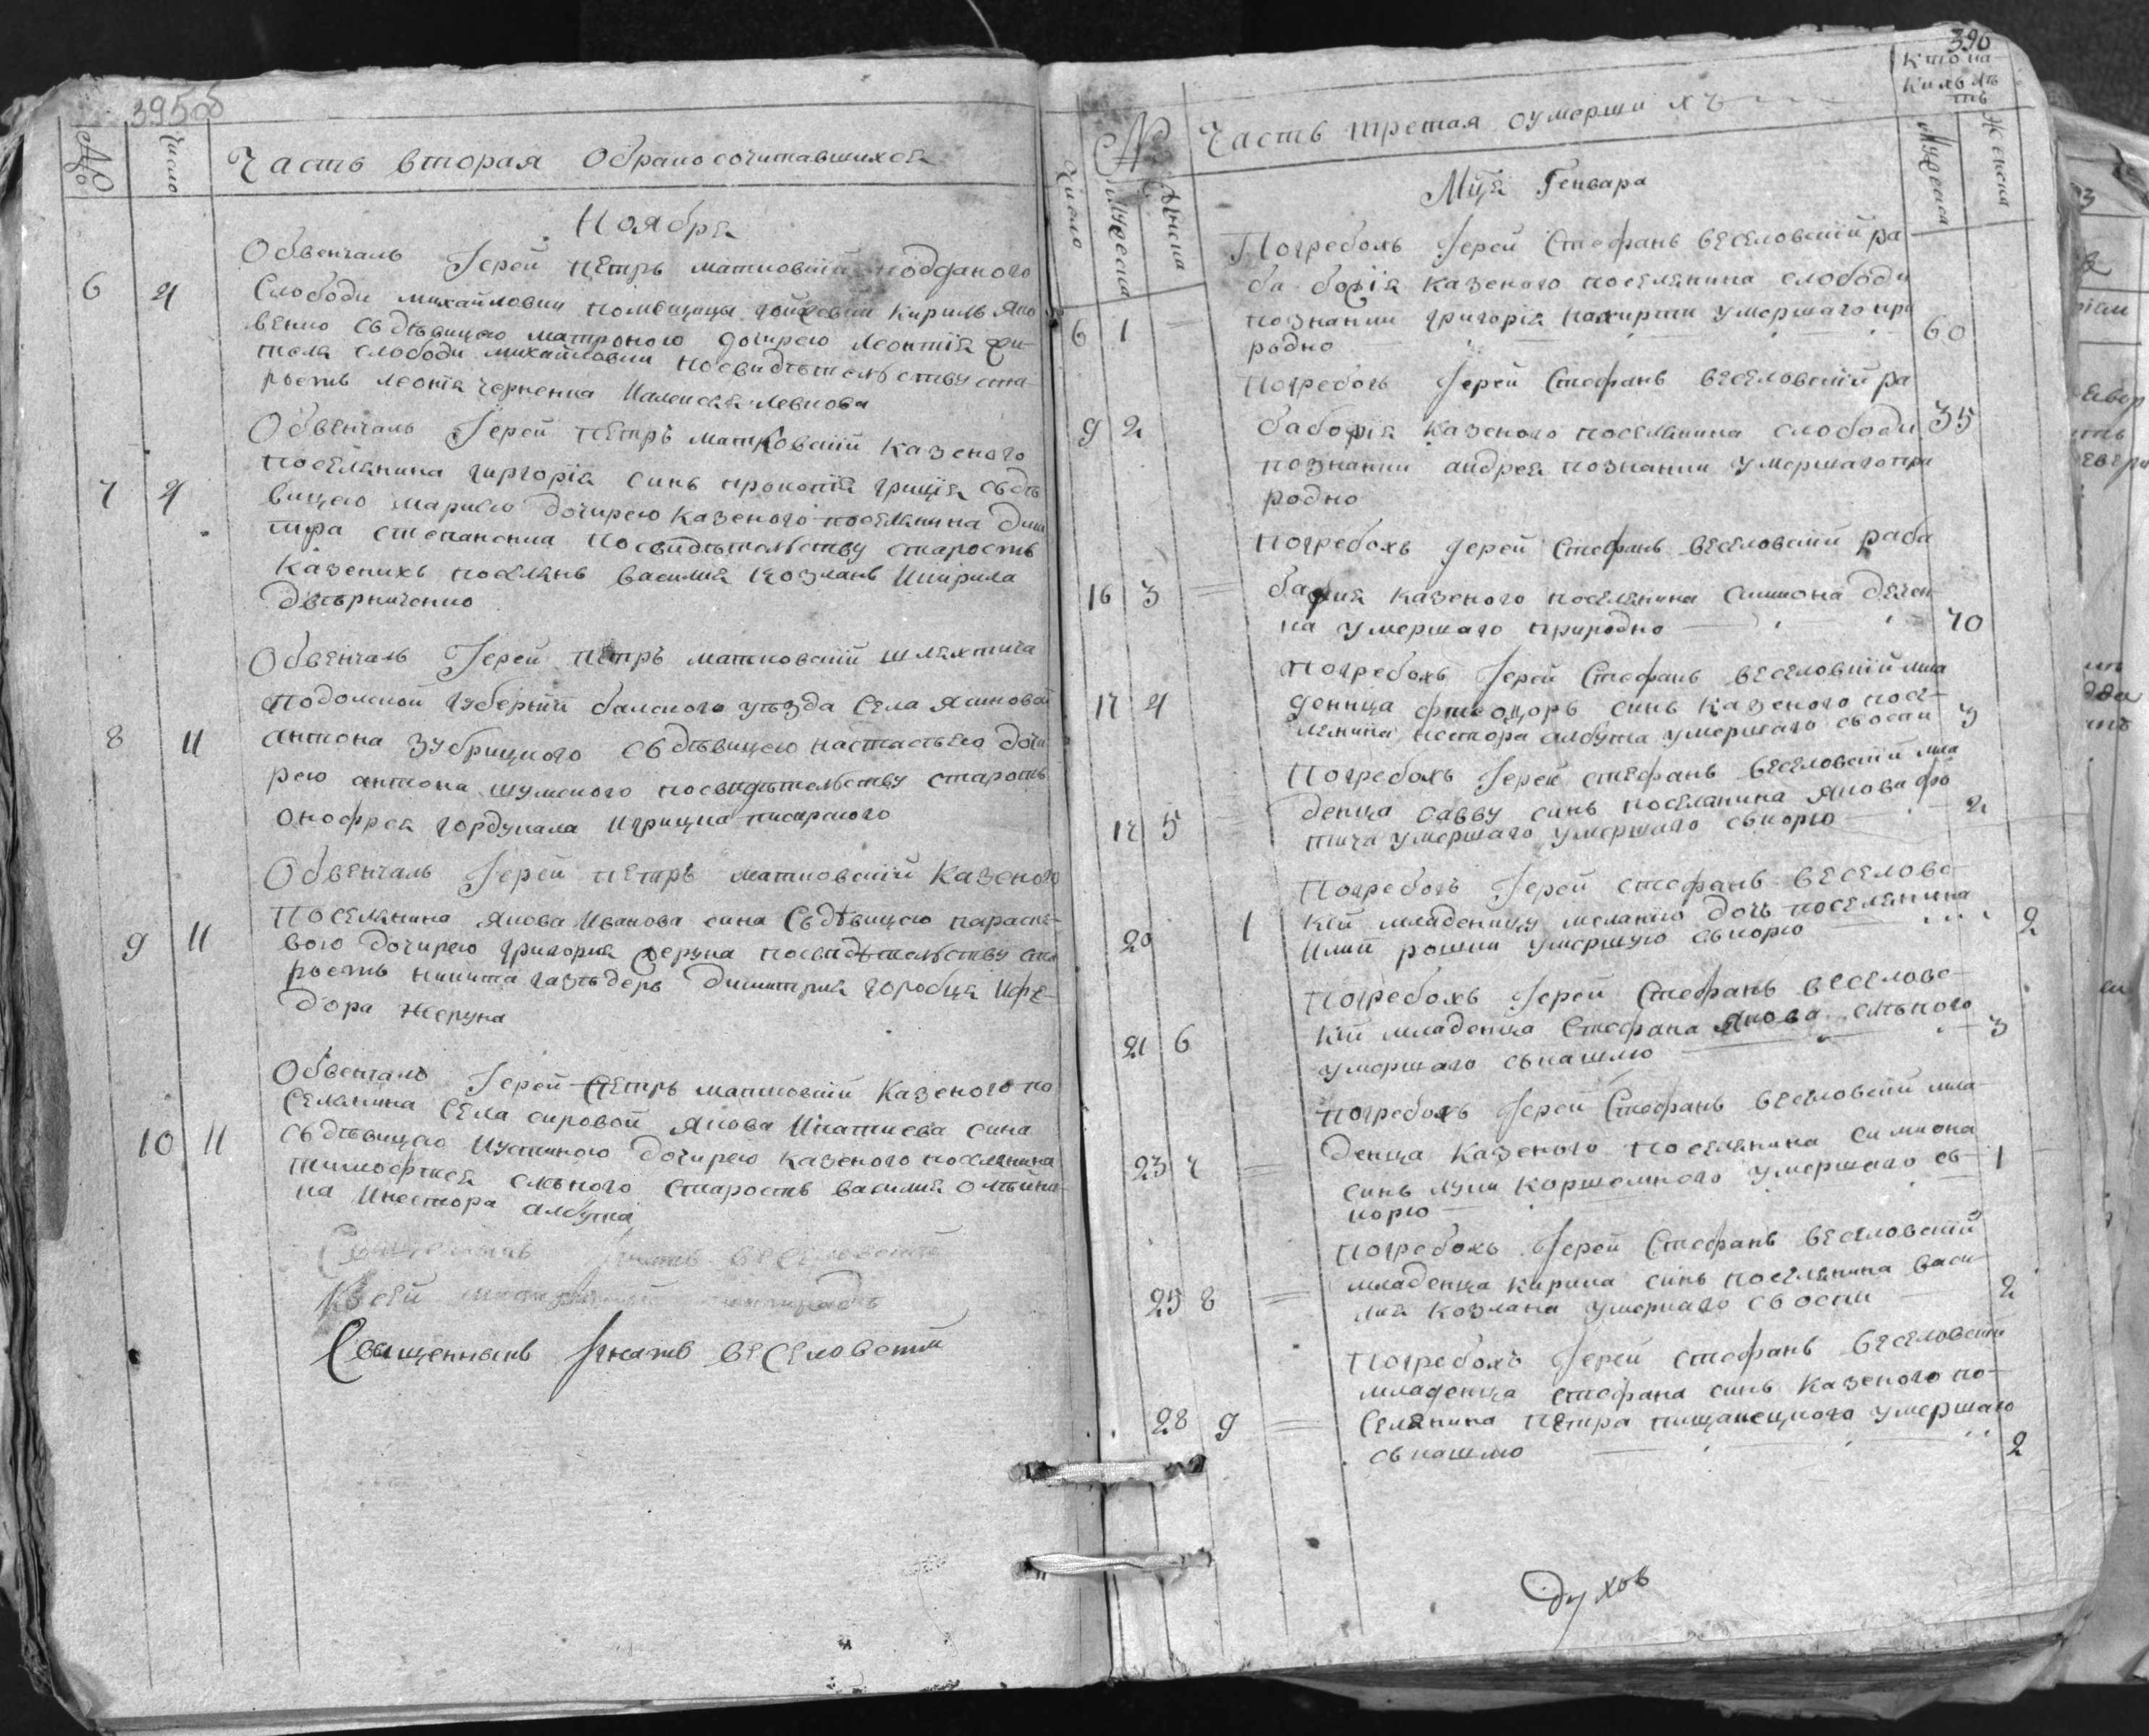 395об
№ Число Часть вторая Обрако сочитавшихся
Ноября
Обвенчалъ Іерей Петръ матковскій подданого
6 4 Слободи михайловки помещицы Кирилъ Яко
венко съ девицею матроною дочирею Леонтія
теля слободи михайловки посвидѣтельству ста
ростъ леонтя черненка Иалексея левкова
Обвенчалъ Іерей Петръ матковскій казеного
7 4 поселянина григорія синъ прокопія гриція съ дѣ
вицею мариею дочирею казеного поселянина дми
тира степаненка посвидѣтельству старостъ
казенихъ поселянъ василия козланъ Икирила
дверниченко
Обвенчалъ Іерей Петръ матковскій шляхтича
подолской губерній балского уѣзда Села Ясиновой
8 11 антона зубрицкого съ дѣвицею настасьею дочи
рею антона шумского посвидѣтельству старостъ
онофрея гордукала Игрицка писарского
Обвенчалъ Іерей Петръ матковскій казеного
9 11 Поселянина Якова Иванова сина съ дѣвицею параске
вою дочирею григория жеруна посвидѣтельству ста
ростъ никита димитрия горобця Ифе
дора жеруна
Обвенчалъ Іерей Петръ матковскій казеного по
селянина села сировой Якова Игнатиева сина
10 11 съ дѣвицею Иустиною дочирею казеного поселянина
тимофтея слѣпого старостъ василия олѣйни
ка Инестора албута
Священникъ Игнатъ веселовскій
Ксей
Священникъ Игнатъ веселовскій
390
Число № мужеска женска Часть третая оумершихъ
Кто на
кихъ лѣ
тъ
Мужеска Женска
Мця Генвара
Погребохъ Іерей Стефанъ веселовскій ра
ба божія казеного поселянина слободи
6 1 познанки григорія умершаго при
родно 60
Погребохъ Іерей Стефанъ веселовскій ра
9 2 ба божія казеного поселянина слободи 35
познанки андрея познанки умершаго при
родно
Погребохъ Іерей Стефанъ веселовскій раба
16 3 божия казеного поселянина симиона дячен
ка умершаго природно 70
Погребохъ Іерей Стефанъ веселовскій мла
17 4 денца синъ казеного посе-
лянина нестора албута умершаго съ оспи 3
Погребохъ Іерей стефанъ веселовскій мла
17 5 денца савву синъ поселянина Якова
тича умершаго умершаго съ корю 2
Погребохъ Іерей стефанъ веселовс
20 1 кій младеницу меланію дочь поселянина
Илии рошки умершую съ корю 2
Погребохъ Іерей Стефанъ веселовс
21 6 кій младенца Стефана Якова слѣпого
умершаго съ кашлю 3
Погребохъ Іерей Стефанъ веселовскій мла
23 7 денца казеного поселянина симиона
синъ луки умершаго съ 1
корю
Погребохъ Іерей Стефанъ веселовскій
25 8 младенца кирила синъ поселянина васи
лия козлана умершаго съ оспи 2
Погребохъ Іерей стефанъ веселовскій
младенца стефана синъ казеного по-
28 9 селянина петра пищанецкого умершаго
съ кашлю 2
Духов